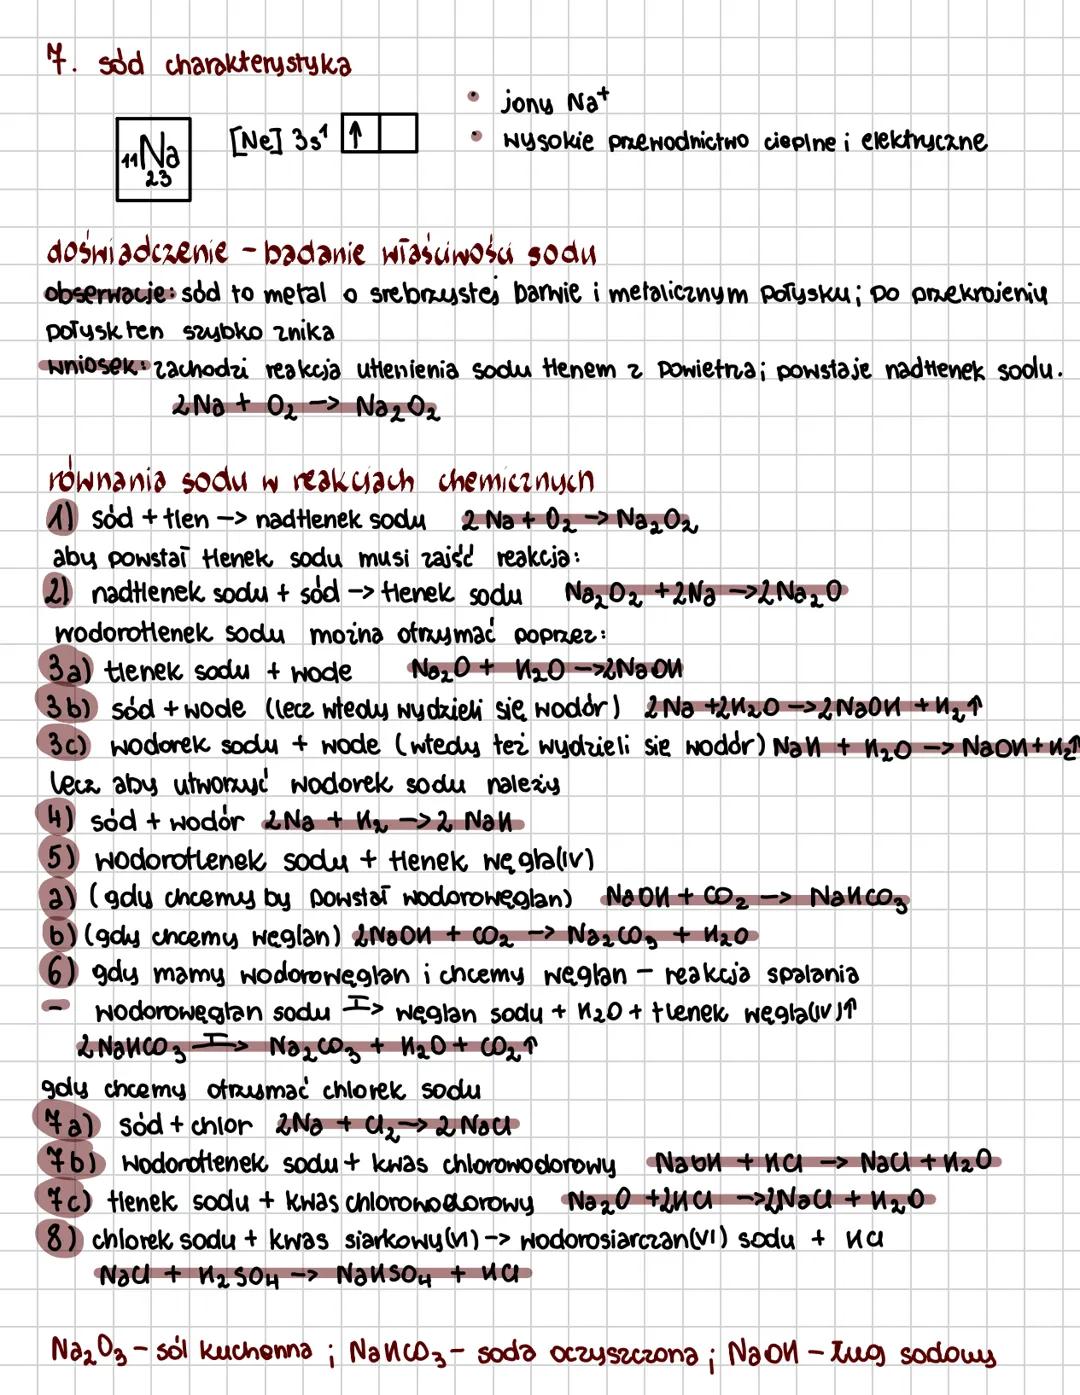 7. sód charakterystyka
• jony Na⁺
11Na 23 [Ne] 3s¹ ↑
• wysokie przewodnictwo cieplne i elektryczne
doświadczenie - badanie właściwości sodu
obserwacje: sód to metal o srebrzystej barwie i metalicznym połysku; po przekrojeniu
połysk ten szybko znika
wniosek: zachodzi reakcja utlenienia sodu tlenem z powietrza; powstaje nadtlenek sodu.
2Na + O₂ -> Na₂O₂
równania sodu w reakcjach chemicznych
1) sód + tlen -> nadtlenek sodu 2Na + O₂ -> Na₂O₂
aby powstał tlenek sodu musi zajść reakcja:
2) nadtlenek sodu + sód -> tlenek sodu Na₂O₂ + 2Na -> 2Na₂O
wodorotlenek sodu można otrzymać poprzez:
3a) tlenek sodu + wode Na₂O + H₂O -> 2NaOH
3b) sód + wode (lecz wtedy wydzieli się wodór) 2Na + 2H₂O -> 2NaOH + H₂↑
3c) wodorek sodu + wode (wtedy też wydzieli sie wodór) NaH + H₂O -> NaOH + H₂↑
lecz aby utworzyć wodorek sodu należy
4) sód + wodór 2Na + H₂ -> 2 NaH
5) wodorotlenek sodu + tlenek węgla(IV)
a) (gdy chcemy by powstał wodorowęglan) NaOH + CO₂ -> NaHCO₃
b) (gdy chcemy węglan) 2NaOH + CO₂ -> Na₂CO₃ + H₂O
6) gdy mamy wodorowęglan i chcemy węglan - reakcja spalania
- wodorowęglan sodu T-> węglan sodu + H₂O + tlenek węgla(IV)↑
2NaHCO₃ T-> Na₂CO₃ + H₂O + CO₂↑
gdy chcemy otrzymać chlorek sodu
7a) sód + chlor 2Na + Cl₂ -> 2 NaCl
7b) wodorotlenek sodu + kwas chlorowodorowy NaOH + HCl -> NaCl + H₂O
7c) tlenek sodu + kwas chlorowodorowy Na₂O + 2HCl -> 2NaCl + H₂O
8) chlorek sodu + kwas siarkowy(VI) -> wodorosiarczan(VI) sodu + HCl
NaCl + H₂SO₄ -> NaHSO₄ + HCl
Na₂O₃ - sól kuchenna ; NaHCO₃ - soda oczyszczona ; NaOH - ług sodowy